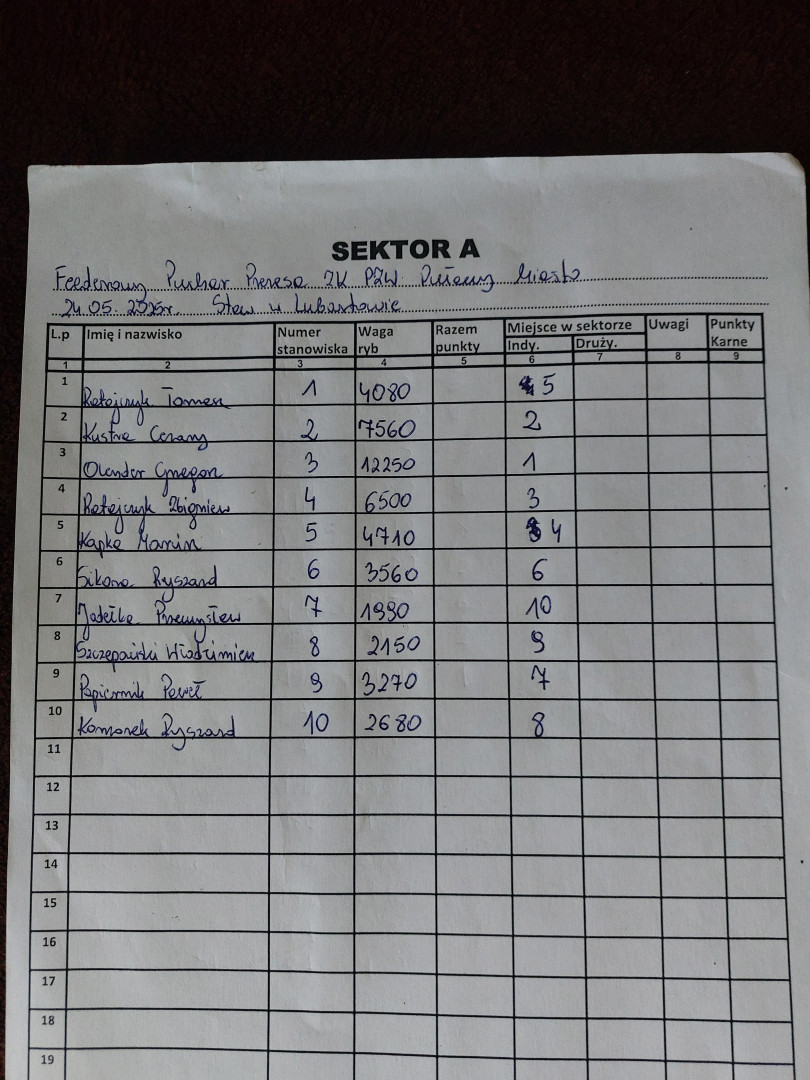 SEKTOR A
Feederowy Puchar Prezesa ZK PZW Puławy Miasto
24.05.2025r. Staw w Lubartowie
L.p Imię i nazwisko Numer stanowiska Waga ryb Razem punkty Miejsce w sektorze Indy. Druży. Uwagi Punkty Karne
1 2 3 4 5 6 7 8 9
1 Ratajczyk Tomasz 1 4080 5
2 Kustra Cezary 2 7560 2
3 Olender Grzegorz 3 12250 1
4 Ratajczyk Zbigniew 4 6500 3
5 Kapka Marcin 5 4710 4
6 Sikora Ryszard 6 3560 6
7 Jadełka Przemysław 7 1990 10
8 Szczepański Włodzimierz 8 2150 9
9 Papiernik Paweł 9 3270 7
10 Komorek Ryszard 10 2680 8
11
12
13
14
15
16
17
18
19